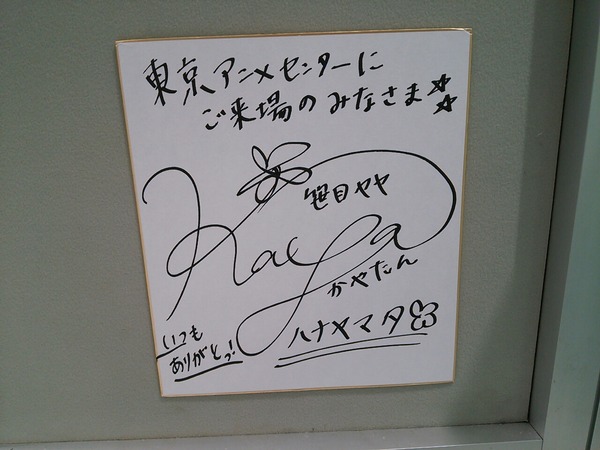 東京アニメセンターに
ご来場のみなさま☆☆
笹目ヤヤ
Kaya
かやたん
ハナヤマタ
いつも
ありがとっ!